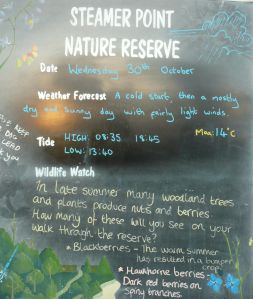 STEAMER POINT
NATURE RESERVE
Date Wednesday 30th October
Weather Forecast A cold start, then a mostly
dry and sunny day with fairly light winds.
Max: 14°C
Tide HIGH: 08:35 18:45
LOW: 13:40
Wildlife Watch
In late summer many woodland trees
and plants produce nuts and berries
How many of these will you see on your
walk through the reserve?
* Blackberries - The warm summer
has resulted in a bumper
crop!
* Hawthorne berries -
Dark red berries on
spiny branches.